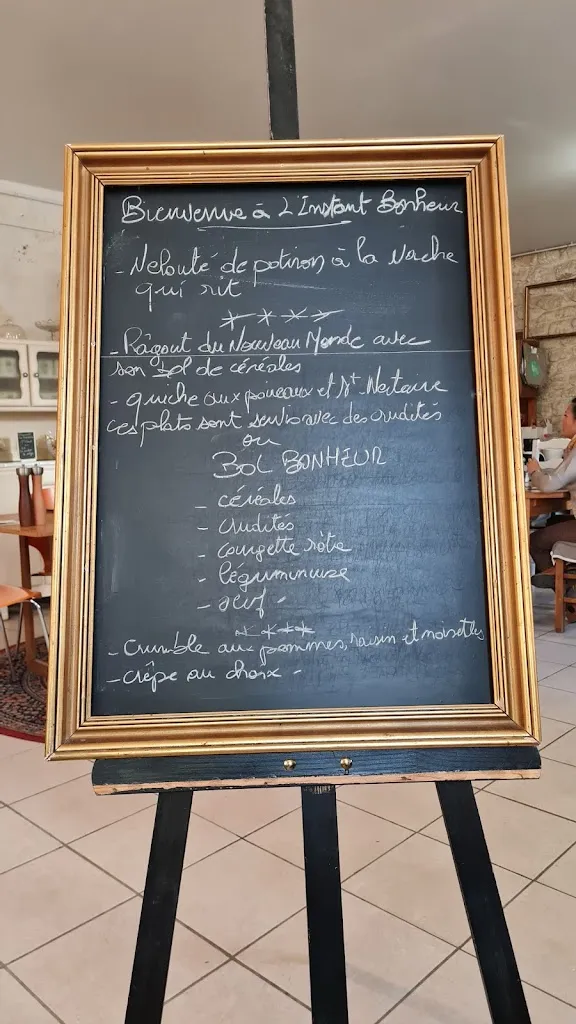 Bienvenue à L'Instant Bonheur
- Velouté de potiron à la Vache
qui rit
- Râgout du Nouveau Monde avec
son bol de céréales
- quiche aux poireaux et St Nectaire
ces plats sont servis avec des crudités
ou
BOL BONHEUR
- céréales
- crudités
- courgette rôtie
- légumineuse
- oeuf -
- Crumble aux pommes, raisin et noisettes
- crêpe au choix -